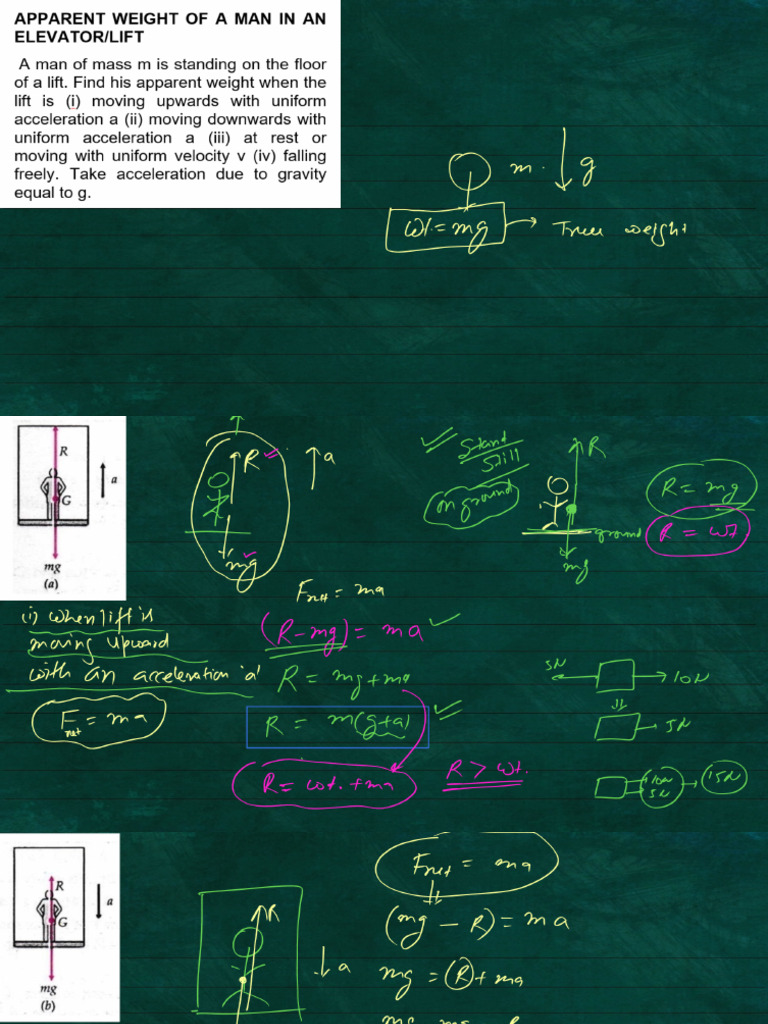 APPARENT WEIGHT OF A MAN IN AN
ELEVATOR/LIFT
A man of mass m is standing on the floor
of a lift. Find his apparent weight when the
lift is (i) moving upwards with uniform
acceleration a (ii) moving downwards with
uniform acceleration a (iii) at rest or
moving with uniform velocity v (iv) falling
freely. Take acceleration due to gravity
equal to g.
m . g
wt. = mg → True weight
R
a
G
mg
(a)
R
a
mg
Stand
Still
on ground
R
ground
mg
R = mg
R = wt
(i) when lift is
moving upward
with an acceleration 'a'
Fnet = ma
Fnet = ma
(R - mg) = ma
R = mg + ma
R = m(g+a)
R = wt. + ma
R > wt.
5N 10N
5N
10N
5N
15N
R
a
G
mg
(b)
R
a
Fnet = ma
(mg - R) = ma
mg = R + ma